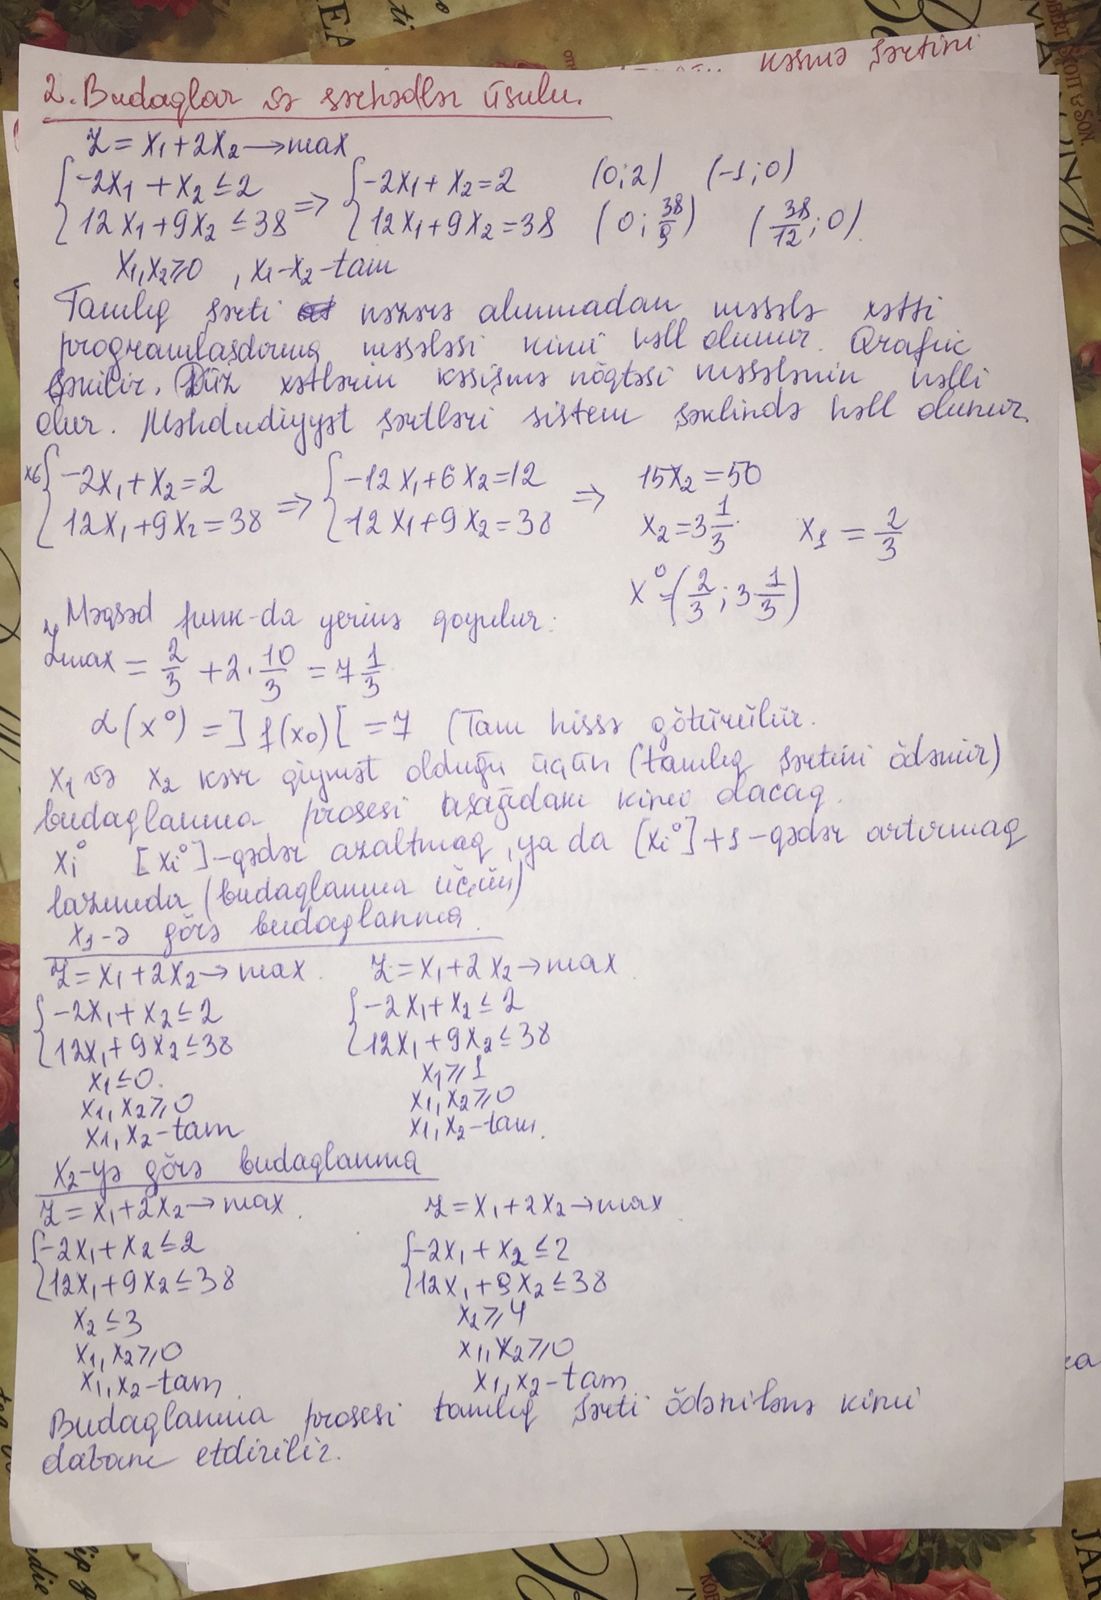 kəsmə şərtini
2. Budaqlar və sərhədlər üsulu.
Z = x₁ + 2x₂ → max
{ -2x₁ + x₂ ≤ 2 ⇒ { -2x₁ + x₂ = 2 (0; 2) (-1; 0)
{ 12x₁ + 9x₂ ≤ 38 { 12x₁ + 9x₂ = 38 (0; 38/9) (38/12; 0).
x₁, x₂ ≥ 0 , x₁-x₂ - tam
Tamlıq şərti nəzərə alınmadan məsələ xətti
proqramlaşdırma məsələsi kimi həll olunur. Qrafik
çəkilir. Düz xətlərin kəsişmə nöqtəsi məsələnin həlli
olur. Məhdudiyyət şərtləri sistem şəklində həll olunur.
x6 { -2x₁ + x₂ = 2 ⇒ { -12x₁ + 6x₂ = 12 ⇒ 15x₂ = 50
{ 12x₁ + 9x₂ = 38 { 12x₁ + 9x₂ = 38 x₂ = 3 1/3 x₁ = 2/3
x⁰ = (2/3 ; 3 1/3)
Məqsəd funk-da yerinə qoyulur:
Zmax = 2/3 + 2 · 10/3 = 7 1/3
α(x⁰) = ] f(x₀) [ = 7 (Tam hissə götürülür.
x₁ və x₂ kəsr qiymət olduğu üçün (tamlıq şərtini ödəmir)
budaqlanma prosesi aşağıdakı kimi olacaq.
xᵢ⁰ [xᵢ⁰]-qədər azaltmaq, ya da [xᵢ⁰]+1-qədər artırmaq
lazımdır (budaqlanma üçün)
x₁-ə görə budaqlanma.
Z = x₁ + 2x₂ → max. Z = x₁ + 2x₂ → max.
{ -2x₁ + x₂ ≤ 2 { -2x₁ + x₂ ≤ 2
{ 12x₁ + 9x₂ ≤ 38 { 12x₁ + 9x₂ ≤ 38
x₁ ≤ 0. x₁ ≥ 1
x₁, x₂ ≥ 0 x₁, x₂ ≥ 0
x₁, x₂ - tam x₁, x₂ - tam.
x₂-yə görə budaqlanma
Z = x₁ + 2x₂ → max. Z = x₁ + 2x₂ → max
{ -2x₁ + x₂ ≤ 2 { -2x₁ + x₂ ≤ 2
{ 12x₁ + 9x₂ ≤ 38 { 12x₁ + 9x₂ ≤ 38
x₂ ≤ 3 x₂ ≥ 4
x₁, x₂ ≥ 0 x₁, x₂ ≥ 0
x₁, x₂ - tam. x₁, x₂ - tam
Budaqlanma prosesi tamlıq şərti ödənilənə kimi
davam etdirilir.